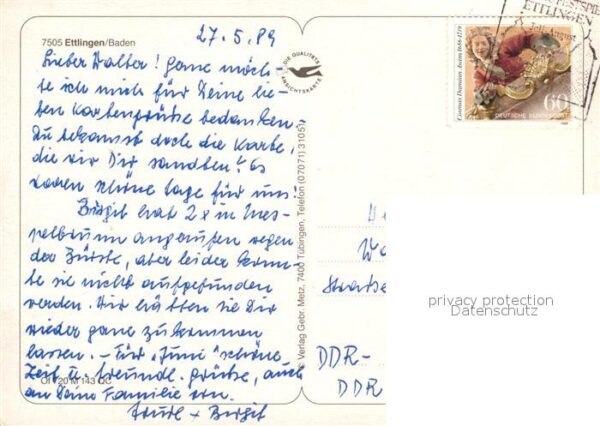 27.5.89
7505 Ettlingen/Baden
Lieber Walter! Gerne möch-
te ich mich für Deine lie-
ben Kartengrüße bedanken.
Du bekamst doch die Karte,
die wir Dir sandten? Es
waren schöne Tage für uns!
Birgit hat 2 x in Mes-
pelbrunn angerufen wegen
der Bürste, aber leider konn-
te sie nicht aufgefunden
werden. Wir hätten sie Dir
wieder gerne zukommen
lassen. – Für "Juni" schöne
Zeit u. freundl. Grüße, auch
an Deine Familie von
+ Birgit
DIE QUALITÄTS
ANSICHTSKARTE
© Verlag Gebr. Metz, 7400 Tübingen, Telefon (07071) 31051
M 143 OC
ETTLINGEN
August
Cosmas Damian Asam 1686-1739
60
DEUTSCHE BUNDESPOST
DDR-
DDR
privacy protection
Datenschutz